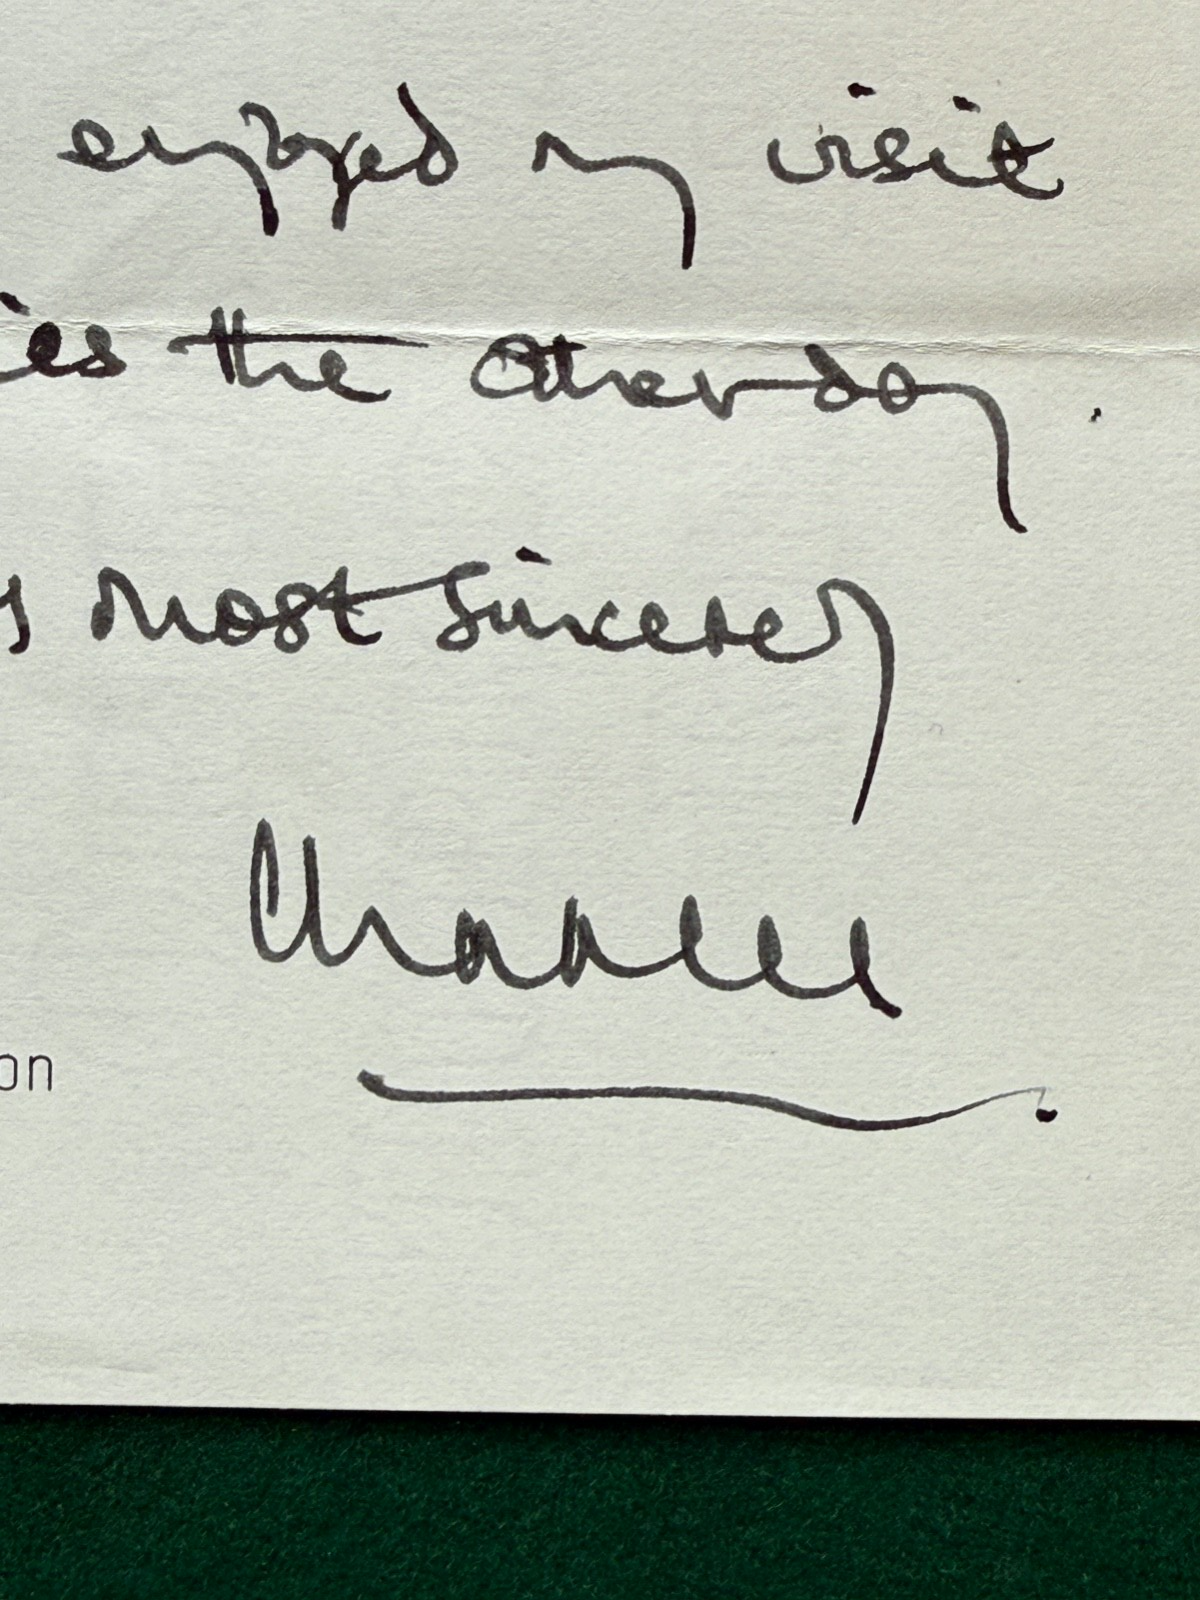 enjoyed my visit
ies the other day.
s most sincerely
Charles
on